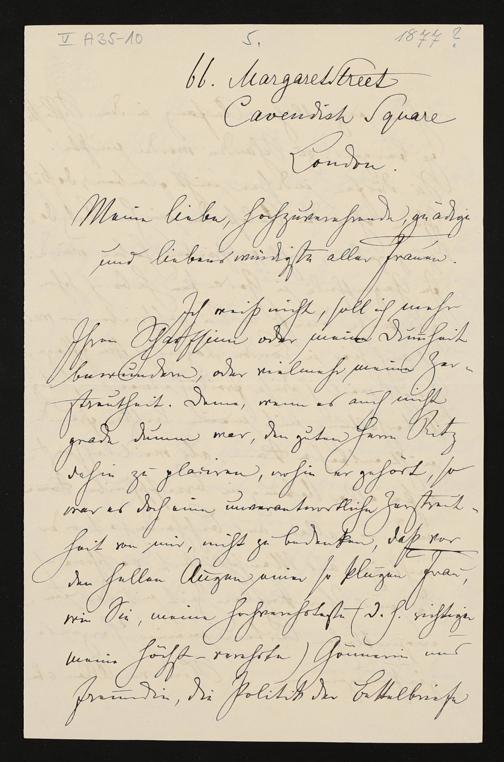 V A35-10 5. 1877?
66. Margaretstreet
Cavendish Square
London.
Meine liebe, hochzuverehrende, gnädige
und liebenswürdigste aller Frauen.
Ich weiß nicht, soll ich mehr
Ihren Scharfsinn oder meine Dummheit
bewundern, oder vielmehr meine Zer-
streutheit. Denn, wenn es auch nicht
grade dumm war, den guten Herrn Ritz
dahin zu placiren, wohin er gehört, so
war es doch eine unverantwortliche Zerstreut-
heit von mir, nicht zu bedenken, daß vor
den hellen Augen einer so klugen Frau,
wie Sie, meine hochverehrteste (d. h. richtiger
meine höchst-verehrte) Gönnerin und
Freundin, die Politik der Bettelbriefe